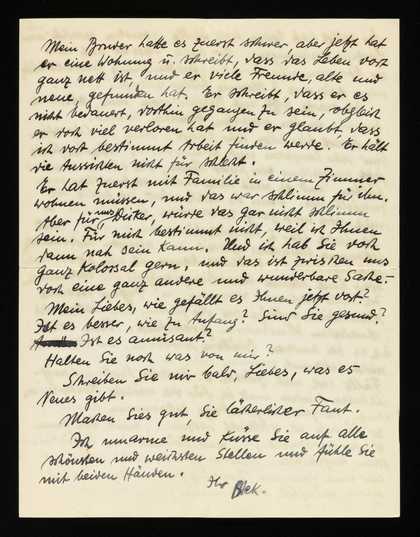 Mein Bruder hatte es zuerst schwer, aber jetzt hat
er eine Wohnung u. schreibt, dass das Leben dort
ganz nett ist und er viele Freunde, alte und
neue, gefunden hat. Er schreibt, dass er es
nicht bedauert, dorthin gegangen zu sein, obgleich
er doch viel verloren hat und er glaubt, dass
ich dort bestimmt Arbeit finden werde. Er hält
die Aussichten nicht für schlecht.
Er hat zuerst mit Familie in einem Zimmer
wohnen müssen, und das war schlimm für ihn.
Aber für uns, würde das gar nicht schlimm
sein. Für mich bestimmt nicht, weil ich Ihnen
dann nah sein kann. Und ich hab Sie doch
ganz kolossal gern, und das ist zwischen uns
doch eine ganz andere und wunderbare Sache.
Mein Liebes, wie gefällt es Ihnen jetzt dort?
Ist es besser, wie zu Anfang? Sind Sie gesund?
Ist es amüsant?
Halten Sie noch was von mir?
Schreiben Sie mir bald, Liebes, was es
Neues gibt.
Machen Sies gut, Sie lästerlicher Faut.
Ich umarme und küsse Sie auf alle
schönsten und weichsten Stellen und fühle Sie
mit beiden Händen.
Ihr